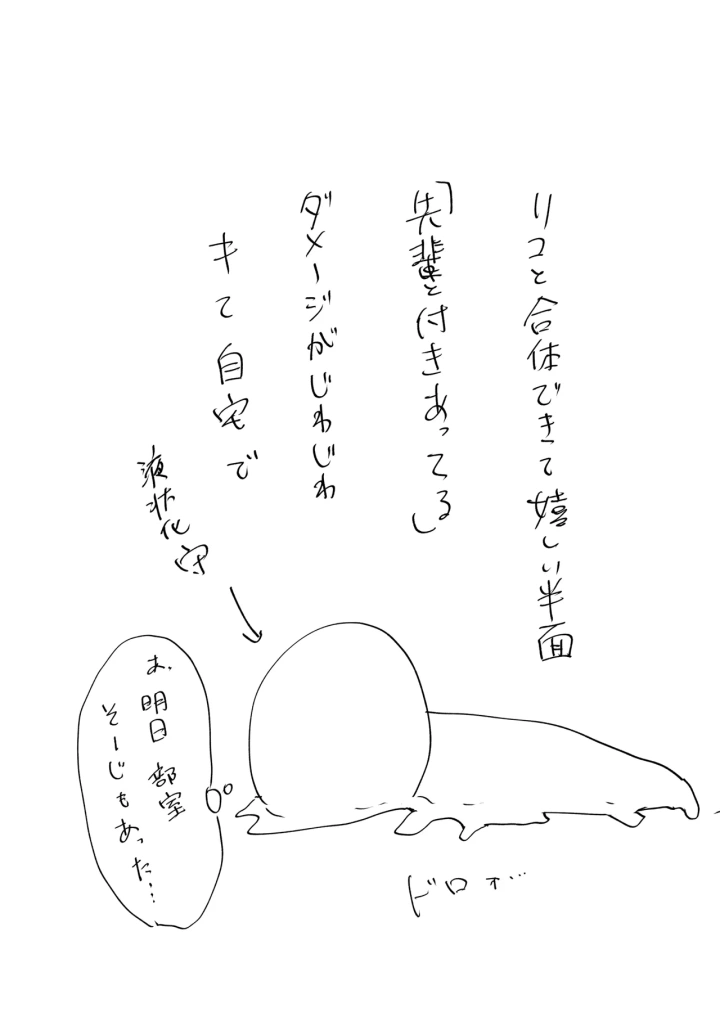 リコと合体できて嬉しい半面
「先輩と付きあってる」
ダメージがじわじわ
キて自宅で
液状化守
あ、明日部室
そーじもあった…
ドロォ…